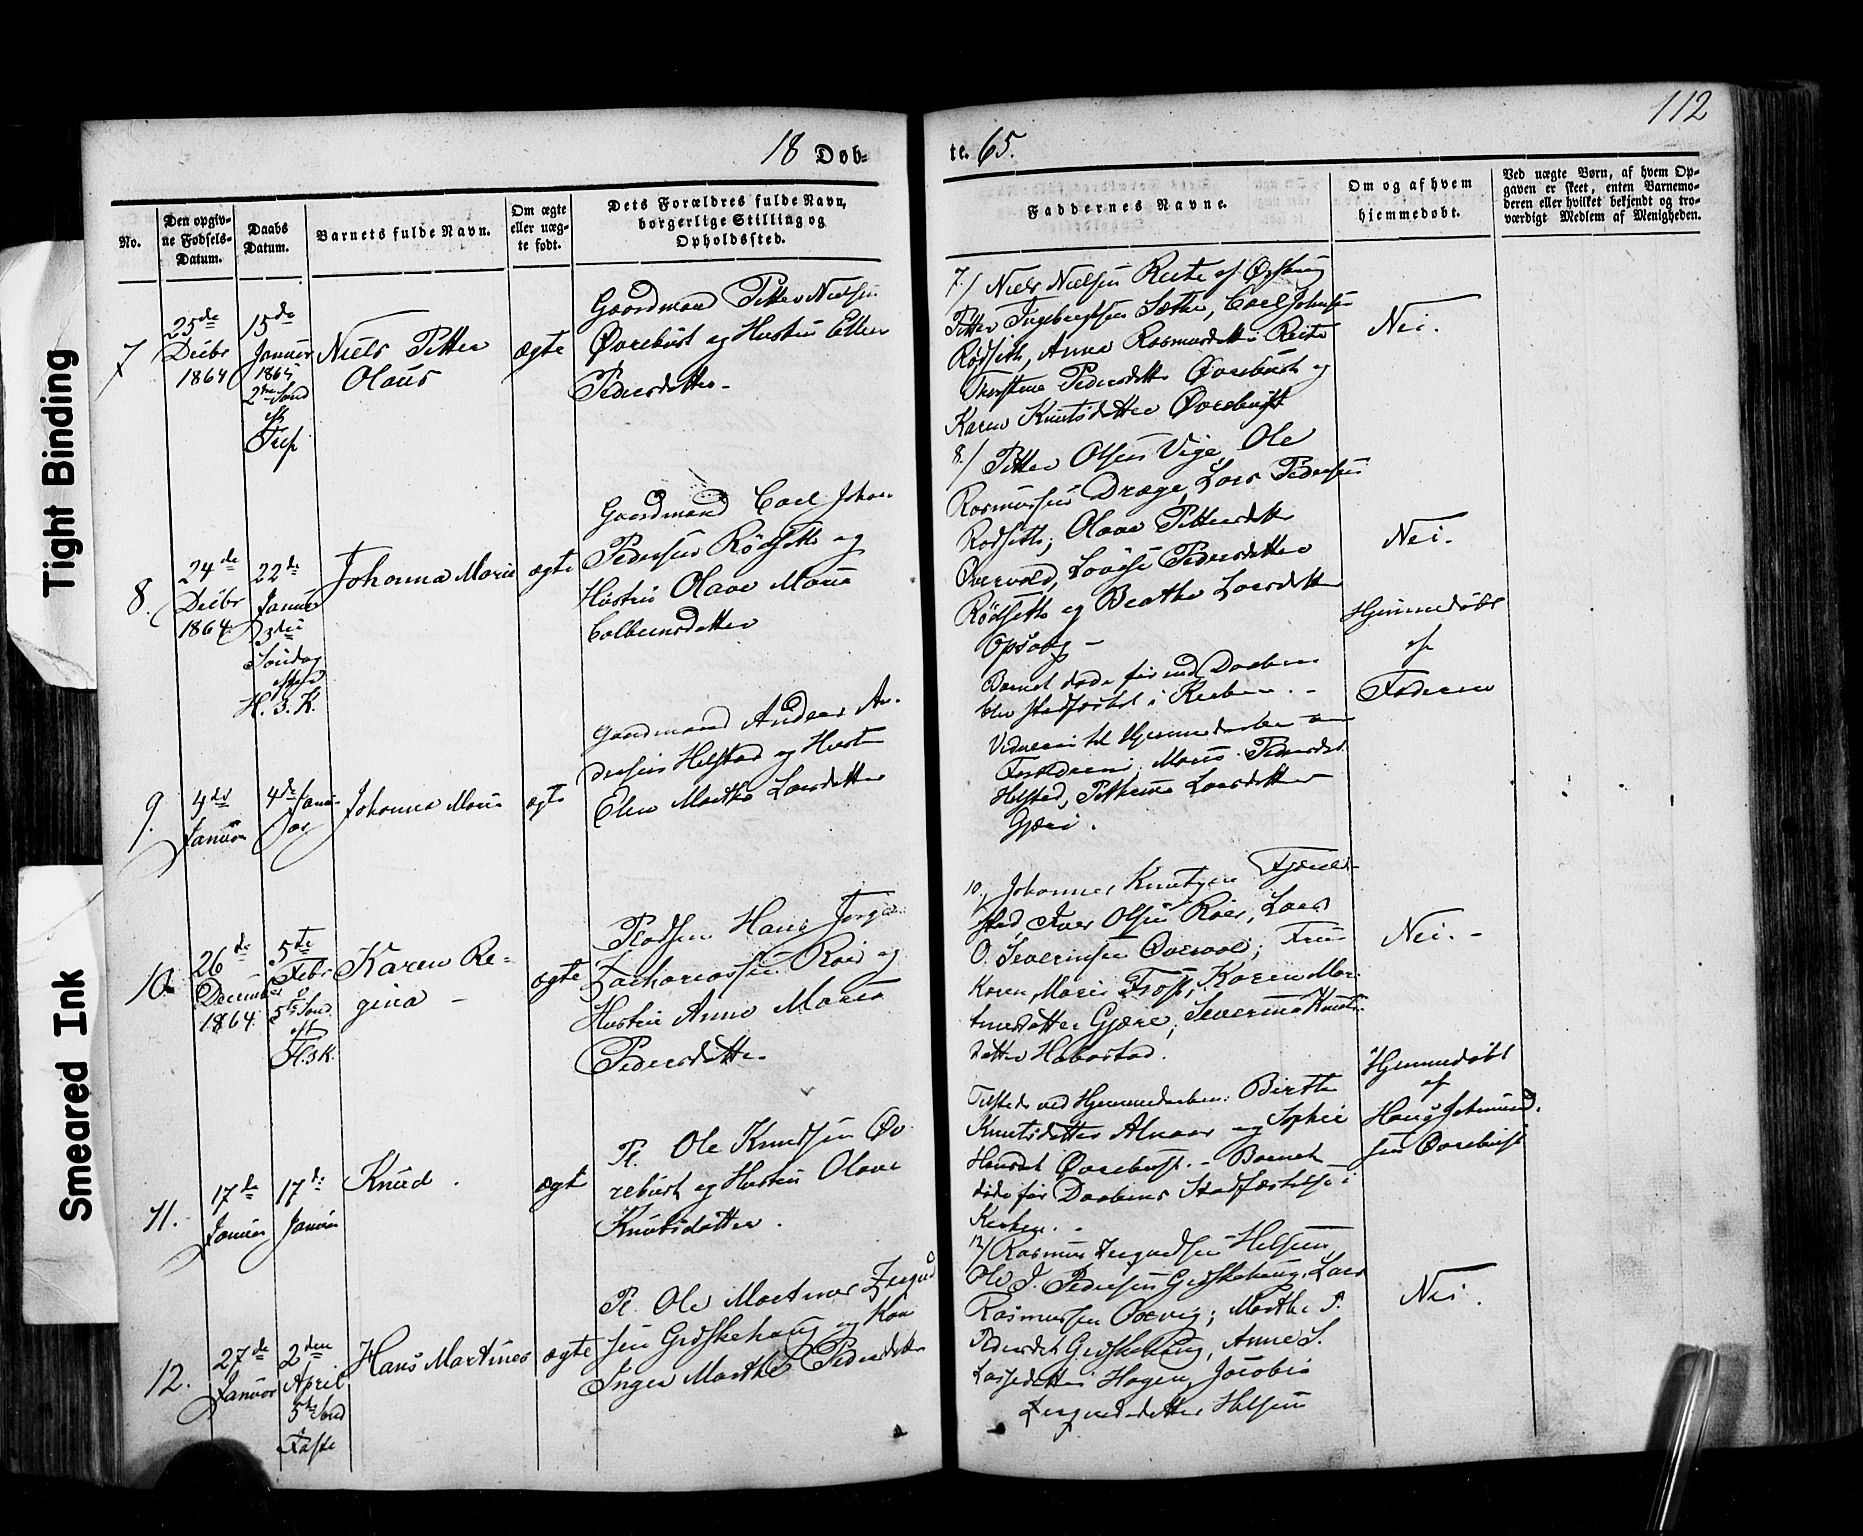 112
18 Døb-
te. 65.
No.
Den opgiv-
ne Fødsels-
Datum.
Daabs
Datum.
Barnets fulde Navn.
Om ægte
eller uæg-
te født.
Dets Forældres fulde Navn,
borgerlige Stilling og
Opholdssted.
Faddernes Navne.
Om og af hvem
hjemmedøbt.
Ved uægte Børn, af hvem Op-
gaven er skeet, enten Barnemo-
deren eller hvilket bekjendt og tro-
værdigt Medlem af Menigheden.
Tight Binding
Smeared Ink
7
25de
Decbr
1864
15de
Januar
1865
2den Sønd
eft
Niels Petter
Olaus
ægte
Gaardmand Petter Nielsen
Øvrebust og Hustru Ellen
Pedersdatter -
7./ Niels Nielsen Reite af
Petter Ingebrigtsen Sæther, Carl Johnsen
Rødseth, Anna Rasmusdatter Reite
Pedersdatter Øvrebust og
Karen Knutsdatter Øvrebust
Nei.
8.
24de
Decbr
1864.
22de
Januar
3die
Søndag
H. 3. K.
Johanna Marie
ægte
Gaardmand Carl Johan
Pedersen Rødseth og
Hustru Olave Marie
8./ Petter Olsen Vige, Ole
Rasmussen Dræge, Lars Pedersen
Rødseth; Olave Pettersdatter
Overvold, Lovise Pedersdatter
Rødseth og Beathe Larsdatter
Opsaag -
Nei.
9.
4de
Januar
4de Janu-
ar
Johanna Marie
ægte
Gaardmand Andreas An-
dersen Helstad og Hustru
Elen Marthe Larsdatter
Barnet døde før end Daaben
blev stadfæstet i Kirken. -
Forældrene, Pedersdat.
Helstad, Larsdatter
Gjære.
Hjemmedøbt
af
Faderen
10.
26de
December
1864.
5te
Febr
5te Sønd
eft
H.3.K.
Karen Re-
gina -
ægte
Pladsm. Hans Jørgen
Zachariassen Roid og
Hustru Anne Maria
Pedersdatter.
10./ Johannes Knutsen
stad, Iver Olsen Roid, Lars
O. Severinsen Overvold; Fru
Karen Marie Frost, Karen Mar-
tinusdatter Gjære, Severine Knuts-
datter Habostad.
Nei. -
11.
17de
Januar
17de
Januar
Knud.
ægte
Pl. Ole Knudsen Øv-
rebust og Hustru Olave
Knutsdatter.
Tilstede ved Hjemmedaaben: Birthe
Knutsdatter Alnaas og Sophie
Hansdt Øvrebust. - Barnet
døde før Daabens Stadfæstelse i
Kirken. -
Hjemmedøbt
af
Hans
sen Øvrebust
12.
27de
Januar
2den
April
5te Sønd
i Faste
Hans Martinus
ægte
Pl. Ole Martinus
sen Gridskehaug og Kone
Inger Marthe Pedersdatter
12/ Rasmus
Ole J. Pedersen Gridskehaug, Lars
Rasmussen Overvig; Marthe P.
Pedersdt Gridskehaug, Anne S.
Lassedatter Hagen, Jacobie
Nei.